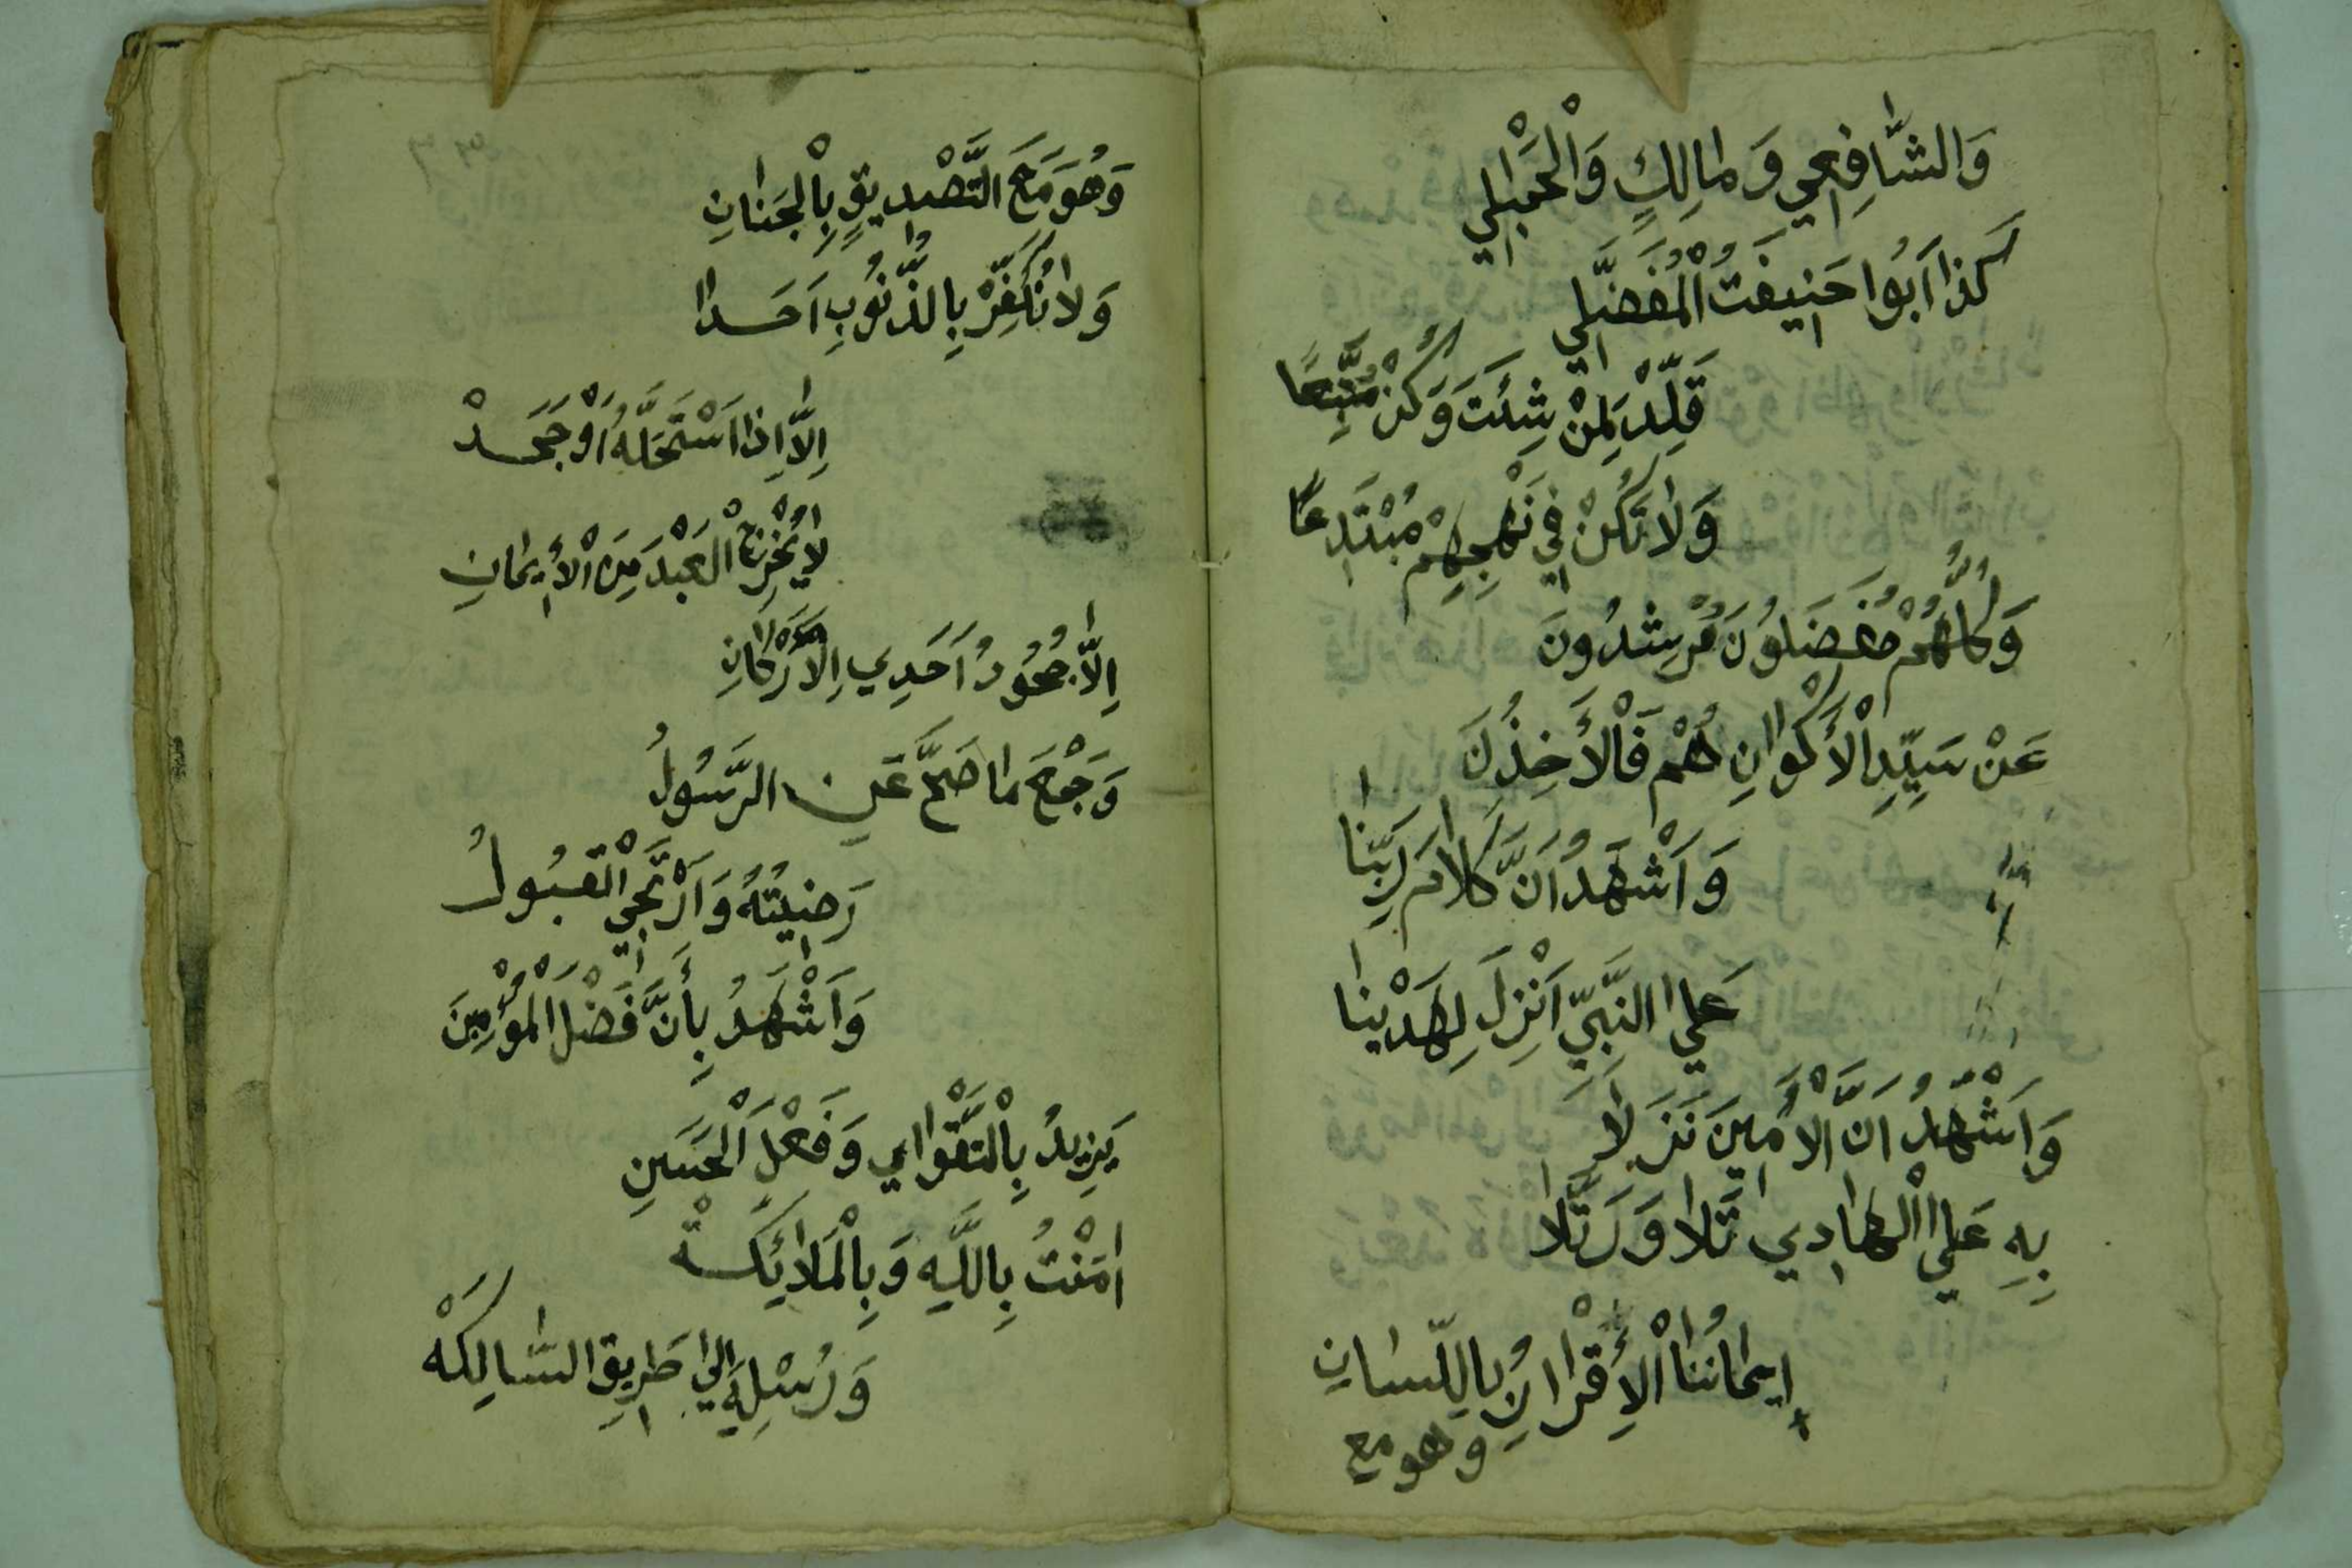 وَالشَّافِعِي وَمَالِكٍ وَالْحَنْبَلِي
كَذَا اَبُوا حَنِيفَتُ الْمُفَضَّلِي
قَلِّدْ لِمَنْ شِئَتَ وَكُنْ مُتَّبِعًا
وَلَا تَكُنْ فِي نَهْجِهِمْ مُبْتَدِعًا
وَكُلُّهُمْ مُفَضَلُونَ مُرْشِدُونَ
عَنْ سَيِّدِ الْأَكْوَانِ هُمْ فَالْأَخِذُنَ
وَاَشْهَدُ اَنَّ كَلَامَ رَبِّنَا
عَلَي النَّبِيِّ اَنْزِلَ لِهَدْيِنَا
وَاَشْهَدُ اَنَّ الْاَمِينَ نَزَلَا
بِهِ عَلَي الْهَادِي تَلَا وَرَتَّلَا
إِيمَانُنَا الْأِقْرَانُ بِاللِّسَانِ
وهو مع
وَهُوَ مَعَ التَّصْدِيقِ بِالْجَنَانِ
وَلَا نُكَفِّرْ بِالذُّنُوبِ اَحَدَا
اِلَّا اِذَا اسْتَحَلَّهُ اَوْ جَحَدْ
لَا يُخْرِجُ الْعَبْدَ مِنَ الْأِيمَانِ
اِلَّا جُحُودُ اَحَدِي الْأَرْكَانِ
وَجَمْعَ مَا صَحَّ عَنِ الرَّسُولُ
رَضِيتُهُ وَارْتَجِي الْقَبُولُ
وَاَشْهَدُ بِأَنَّ فَضْلَ الْمُؤْمِنَ
يَزِيدُ بِالْتَّقْوَاي وَفَعْلِ الْحَسَنِ
اٰمَنْتُ بِاللَّهِ وَبِالْمَلَائِكَةْ
وَرُسْلِهِ اِلَي طَرِيقِ السَّالِكَهْ